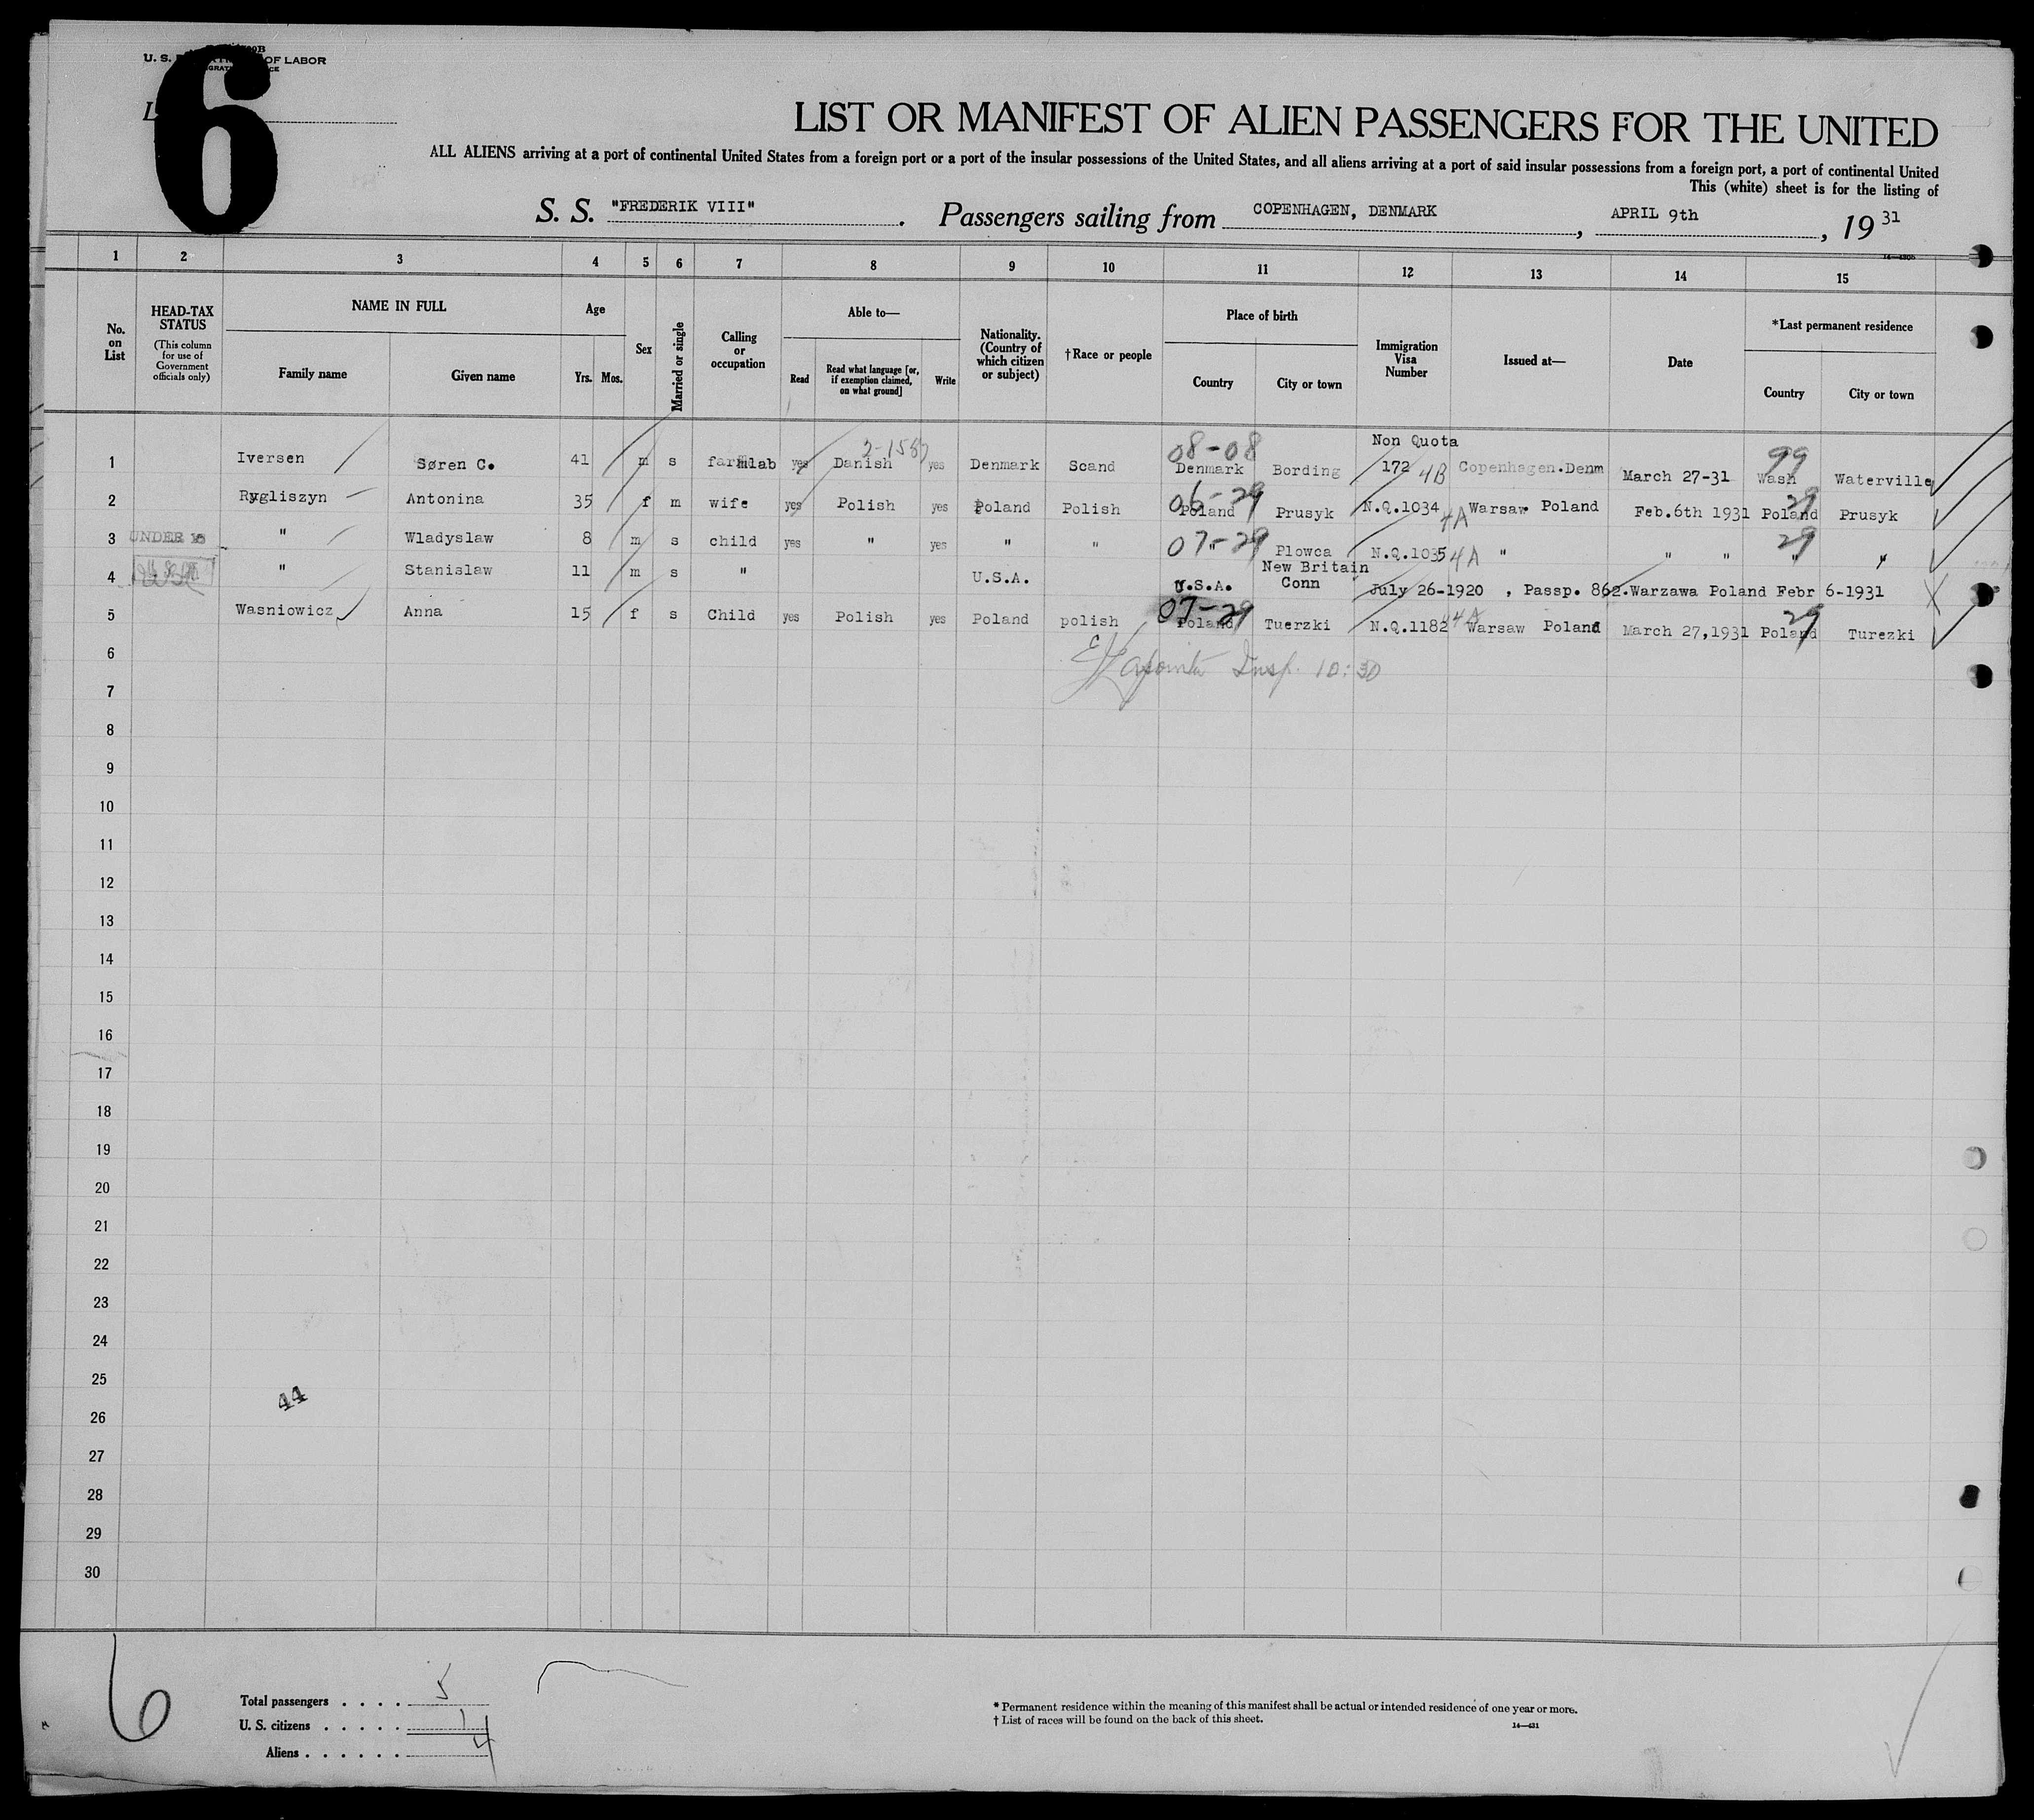 6
U. S. OF LABOR
LIST OR MANIFEST OF ALIEN PASSENGERS FOR THE UNITED
ALL ALIENS arriving at a port of continental United States from a foreign port or a port of the insular possessions of the United States, and all aliens arriving at a port of said insular possessions from a foreign port, a port of continental United
This (white) sheet is for the listing of
S. S. "FREDERIK VIII". Passengers sailing from COPENHAGEN, DENMARK, APRIL 9th, 19 31
1 2 3 4 5 6 7 8 9 10 11 12 13 14 15
No. on List
HEAD-TAX STATUS (This column for use of Government officials only)
NAME IN FULL Family name Given name
Age Yrs. Mos.
Sex
Married or single
Calling or occupation
Able to— Read Read what language [or, if exemption claimed, on what ground] Write
Nationality. (Country of which citizen or subject)
†Race or people
Place of birth Country City or town
Immigration Visa Number
Issued at—
Date
*Last permanent residence Country City or town
2-1587 08-08 Non Quota 99
1 Iversen Søren C. 41 m s farmlab yes Danish yes Denmark Scand Denmark Bording 172 4B Copenhagen.Denm March 27-31 Wash Waterville
06-29 29
2 Rygliszyn Antonina 35 f m wife yes Polish yes Poland Polish Poland Prusyk N.Q.1034 4A Warsaw Poland Feb.6th 1931 Poland Prusyk
07-29 29
3 UNDER " Wladyslaw 8 m s child yes " yes " " " Plowca N.Q.1035 4A " " " " "
4 " Stanislaw 11 m s " U.S.A. U.S.A. New Britain Conn July 26-1920 , Passp. 862.Warzawa Poland Febr 6-1931
07-29 29
5 Wasniowicz Anna 15 f s Child yes Polish yes Poland polish Poland Tuerzki N.Q.1182 4A Warsaw Poland March 27,1931 Poland Turezki
6 Insp. 10:30
7
8
9
10
11
12
13
14
15
16
17
18
19
20
21
22
23
24
25
44
26
27
28
29
30
6
Total passengers . . . . 5
U. S. citizens . . . . . 1
Aliens . . . . . . 4
* Permanent residence within the meaning of this manifest shall be actual or intended residence of one year or more.
† List of races will be found on the back of this sheet.
14—431